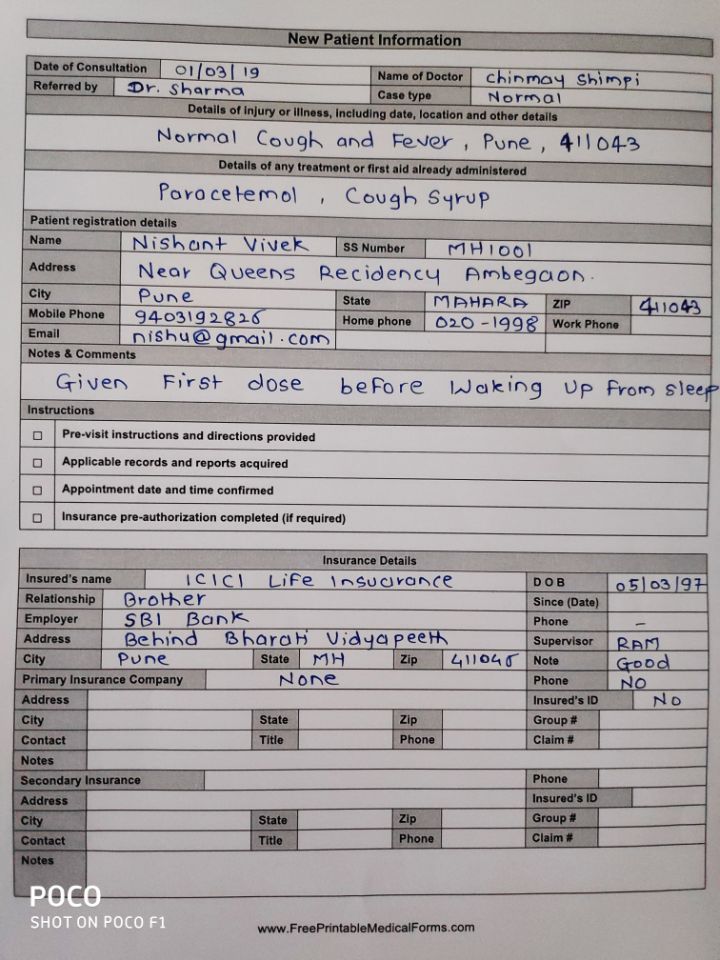 New Patient Information
Date of Consultation 01/03/19 Name of Doctor Chinmay Shimpi
Referred by Dr. Sharma Case type Normal
Details of injury or illness, including date, location and other details
Normal Cough and Fever, Pune, 411043
Details of any treatment or first aid already administered
Paracetemol, Cough Syrup
Patient registration details
Name Nishant Vivek SS Number MH1001
Address Near Queens Recidency Ambegaon.
City Pune State MAHARA ZIP 411043
Mobile Phone 9403192826 Home phone 020-1998 Work Phone
Email nishu@gmail.com
Notes & Comments
Given First dose before Waking Up from sleep
Instructions
Pre-visit instructions and directions provided
Applicable records and reports acquired
Appointment date and time confirmed
Insurance pre-authorization completed (if required)
Insurance Details
Insured's name ICICI Life Insurance DOB 05/03/97
Relationship Brother Since (Date)
Employer SBI Bank Phone –
Address Behind Bharati Vidyapeeth Supervisor RAM
City Pune State MH Zip 411046 Note Good
Primary Insurance Company None Phone NO
Address Insured's ID No
City State Zip Group #
Contact Title Phone Claim #
Notes
Secondary Insurance Phone
Address Insured's ID
City State Zip Group #
Contact Title Phone Claim #
Notes
POCO
SHOT ON POCO F1
www.FreePrintableMedicalForms.com